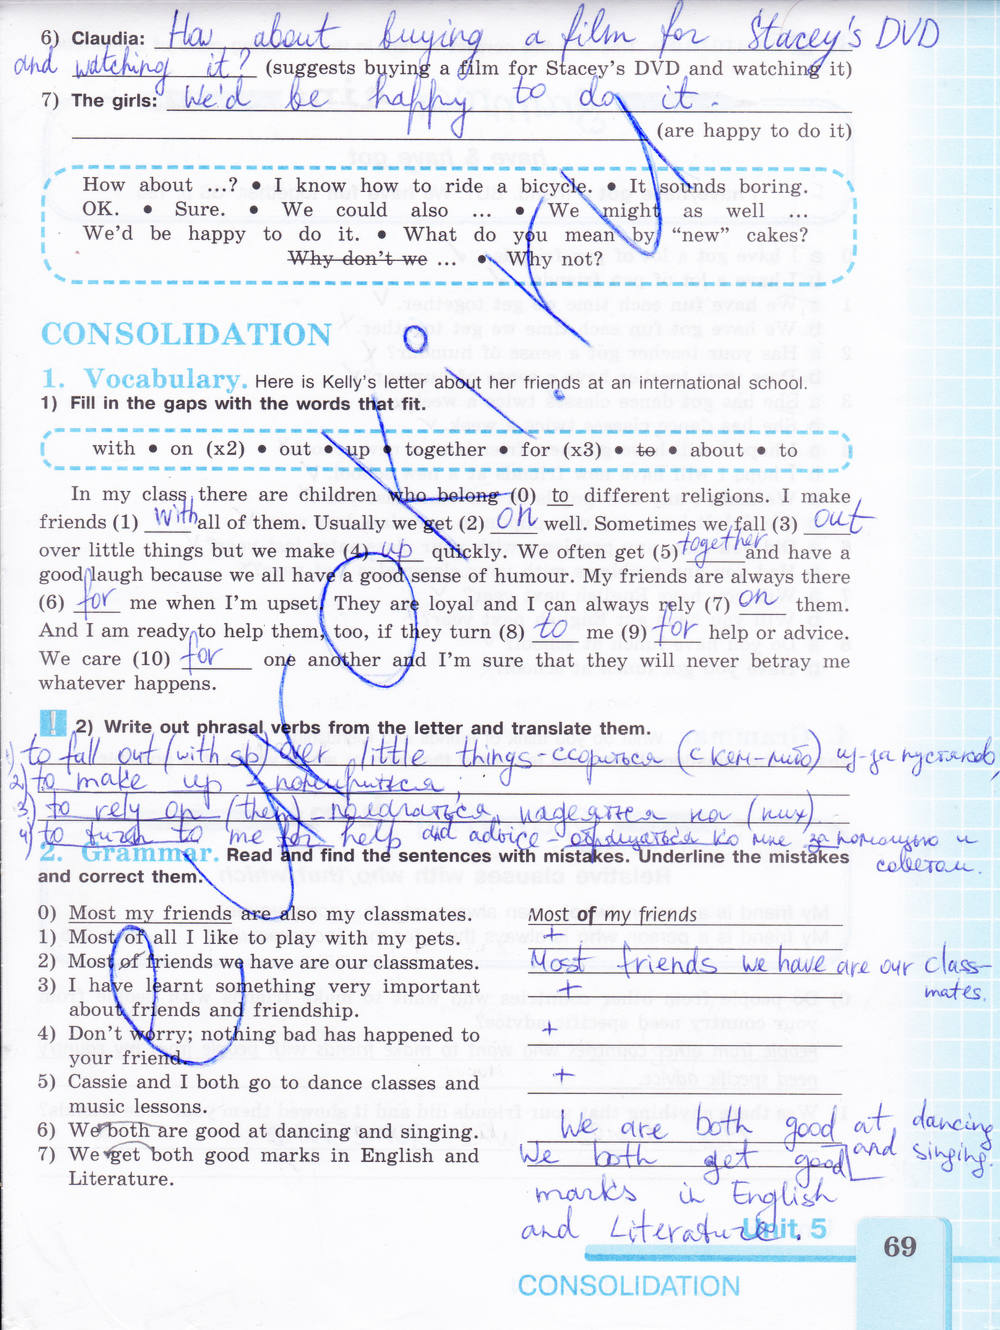 6) Claudia: How about buying a film for Stacey's DVD
and watching it? (suggests buying a film for Stacey's DVD and watching it)
7) The girls: We'd be happy to do it.
(are happy to do it)
How about ...? • I know how to ride a bicycle. • It sounds boring.
OK. • Sure. • We could also ... • We might as well ...
We'd be happy to do it. • What do you mean by “new” cakes?
Why don't we ... • Why not?
CONSOLIDATION
1. Vocabulary. Here is Kelly's letter about her friends at an international school.
1) Fill in the gaps with the words that fit.
with • on (x2) • out • up • together • for (x3) • to • about • to
In my class there are children who belong (0) to different religions. I make
friends (1) with all of them. Usually we get (2) on well. Sometimes we fall (3) out
over little things but we make (4) up quickly. We often get (5) together and have a
good laugh because we all have a good sense of humour. My friends are always there
(6) for me when I'm upset. They are loyal and I can always rely (7) on them.
And I am ready to help them, too, if they turn (8) to me (9) for help or advice.
We care (10) for one another and I'm sure that they will never betray me
whatever happens.
! 2) Write out phrasal verbs from the letter and translate them.
1) to fall out (with sb) over little things - ссориться (с кем-либо) из-за пустяков,
2) to make up - помириться,
3) to rely on (them) - полагаться, надеяться на (них)
4) to turn to me for help and advice - обращаться ко мне за помощью и
советом.
2. Grammar. Read and find the sentences with mistakes. Underline the mistakes
and correct them.
0) Most my friends are also my classmates. Most of my friends
1) Most of all I like to play with my pets. +
2) Most of friends we have are our classmates. Most friends we have are our class-
mates.
3) I have learnt something very important +
about friends and friendship.
4) Don't worry; nothing bad has happened to +
your friend.
5) Cassie and I both go to dance classes and +
music lessons.
6) We both are good at dancing and singing. We are both good at dancing
and singing.
7) We get both good marks in English and We both get good
Literature. marks in English
and Literature.
Unit 5
69
CONSOLIDATION